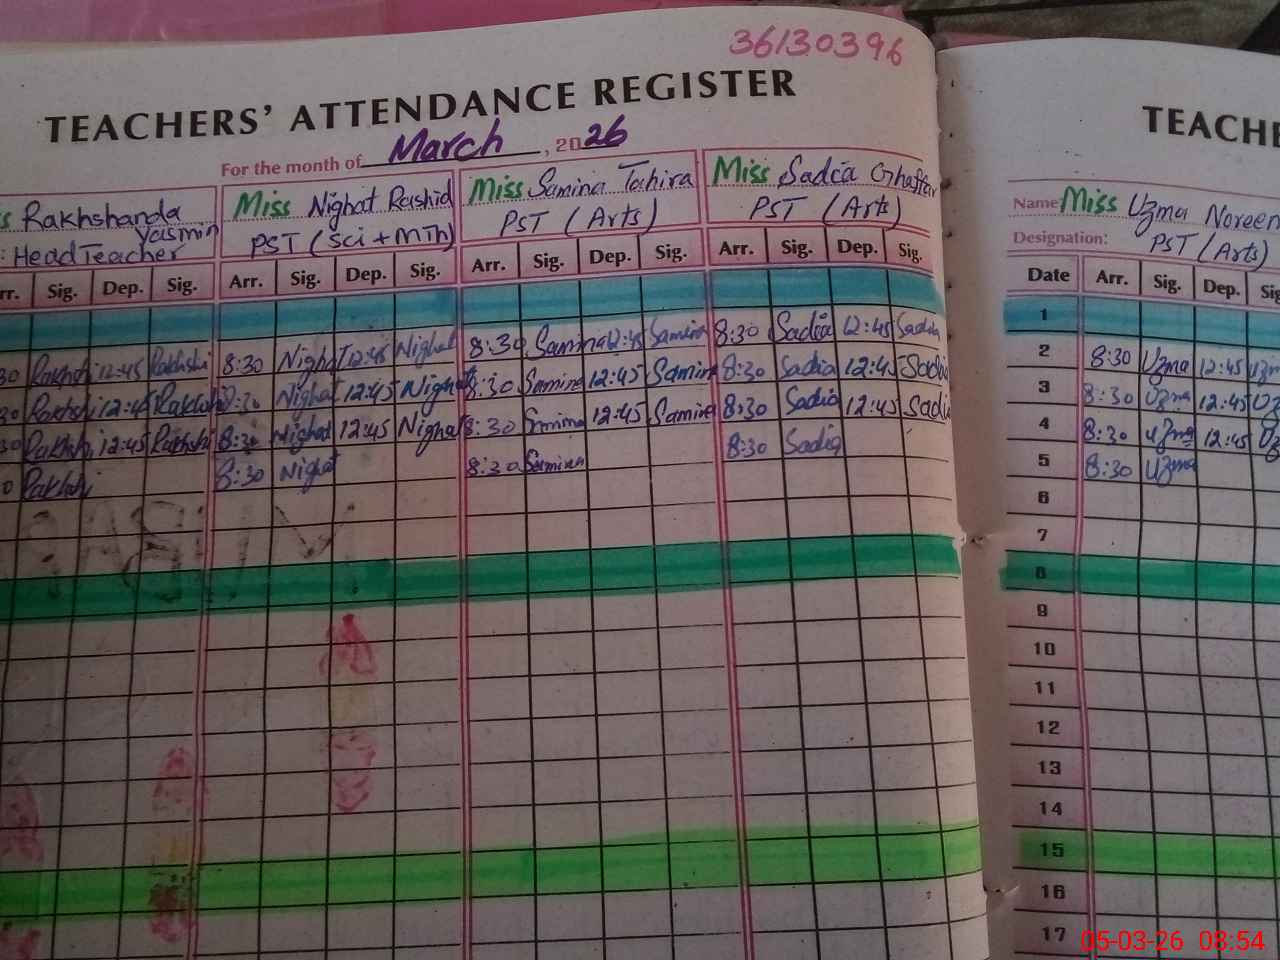 36130396
TEACHERS' ATTENDANCE REGISTER
For the month of March, 2026
Rakhshanda Yasmin
Head Teacher
Miss Nighat Rashid
PST (Sci + MTh)
Miss Samina Tahira
PST (Arts)
Miss Sadia Ghaffar
PST (Arts)
Sig. Dep. Sig. Arr. Sig. Dep. Sig. Arr. Sig. Dep. Sig. Arr. Sig. Dep. Sig.
30 Rakhshi 12:45 Rakhshi 8:30 Nighat 12:45 Nighat 8:30 Samina 12:45 Samina 8:30 Sadia 12:45 Sadia
30 Rakhshi 12:45 Rakhshi 8:30 Nighat 12:45 Nighat 8:30 Samina 12:45 Samina 8:30 Sadia 12:45 Sadia
30 Rakhshi 12:45 Rakhshi 8:30 Nighat 12:45 Nighat 8:30 Samina 12:45 Samina 8:30 Sadia 12:45 Sadia
0 Rakhshi 8:30 Nighat 8:30 Samina 8:30 Sadia
TEACHE
Name Miss Uzma Noreen
Designation: PST (Arts)
Date Arr. Sig. Dep. Sig
1
2 8:30 Uzma 12:45 Uzma
3 8:30 Uzma 12:45 Uz
4 8:30 Uzma 12:45 Uz
5 8:30 Uzma
6
7
8
9
10
11
12
13
14
15
16
17
05-03-26 08:54